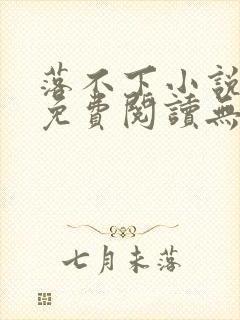 落不下小說
免費閱讀無
七月未落